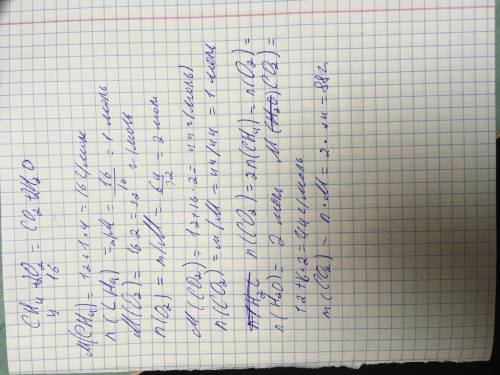 CH₄ + 2O₂ = CO₂ + 2H₂O
M(CH₄) = 12+1·4 = 16 г/моль
n(CH₄) = m/M = 16/16 = 1 моль
M(O₂) = 16·2 = 32 г/моль
n(O₂) = m/M = 64/32 = 2 моль
M(CO₂) = 12+16·2 = 44 г/моль)
n(CO₂) = m/M = 44/44 = 1 моль
n(CO₂) = 2n(CH₄) = n(O₂) =
n(H₂O) = 2 моль M(H₂O)(CO₂) =
12+16·2 = 44 г/моль
m(CO₂) = n·M = 2·44 = 88г.